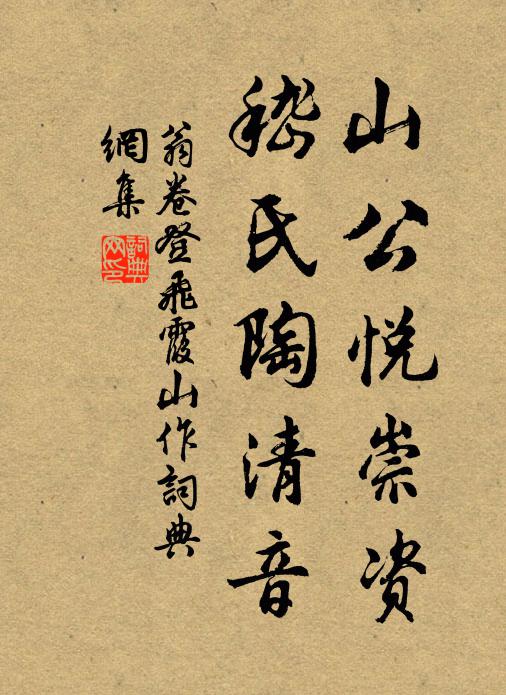 山公悦崇资
嵇氏陶清音
翁卷登飛霞山作詞典
網集
詞典网印